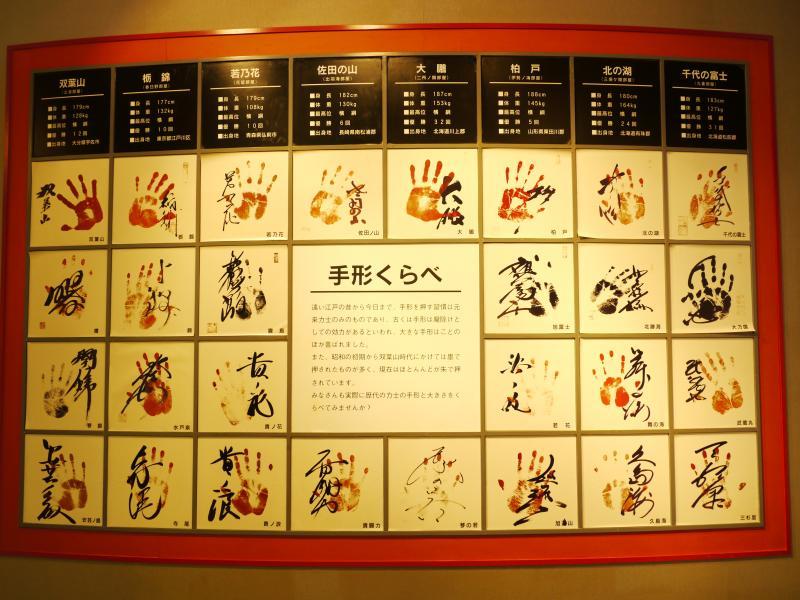 双葉山
■身　長　179cm
■体　重　128kg
■最高位　横　綱
■優　勝　12回
■出身地　大分県宇佐市
栃錦
(春日野部屋)
■身　長　177cm
■体　重　132kg
■最高位　横　綱
■優　勝　10回
■出身地　東京都江戸川区
若乃花
(花籠部屋)
■身　長　179cm
■体　重　108kg
■最高位　横　綱
■優　勝　10回
■出身地　青森県弘前市
佐田の山
(出羽海部屋)
■身　長　182cm
■体　重　130kg
■最高位　横　綱
■優　勝　6回
■出身地　長崎県南松浦郡
大鵬
(二所ノ関部屋)
■身　長　187cm
■体　重　153kg
■最高位　横　綱
■優　勝　32回
■出身地　北海道川上郡
柏戸
(伊勢ノ海部屋)
■身　長　188cm
■体　重　145kg
■最高位　横　綱
■優　勝　5回
■出身地　山形県東田川郡
北の湖
(三保ケ関部屋)
■身　長　180cm
■体　重　164kg
■最高位　横　綱
■優　勝　24回
■出身地　北海道有珠郡
千代の富士
(九重部屋)
■身　長　183cm
■体　重　127kg
■最高位　横　綱
■優　勝　31回
■出身地　北海道松前郡
双葉山
栃錦
若乃花
佐田ノ山
大鵬
柏戸
北の湖
千代の富士
曙
霧島
旭富士
北勝海
大乃国
手形くらべ
遠い江戸の昔から今日まで、手形を押す習慣は元
来力士のみのものであり、古くは手形は魔除けと
しての効力があるといわれ、大きな手形はことの
ほか喜ばれました。
また、昭和の初期から双葉山時代にかけては墨で
押されたものが多く、現在はほとんどが朱で押
されています。
みなさんも実際に歴代の力士の手形と大きさをく
らべてみませんか？
琴錦
水戸泉
貴ノ花
若花
舞の海
武蔵丸
安芸ノ島
寺尾
貴ノ浪
貴闘力
夢の若
旭道山
久島海
三杉里